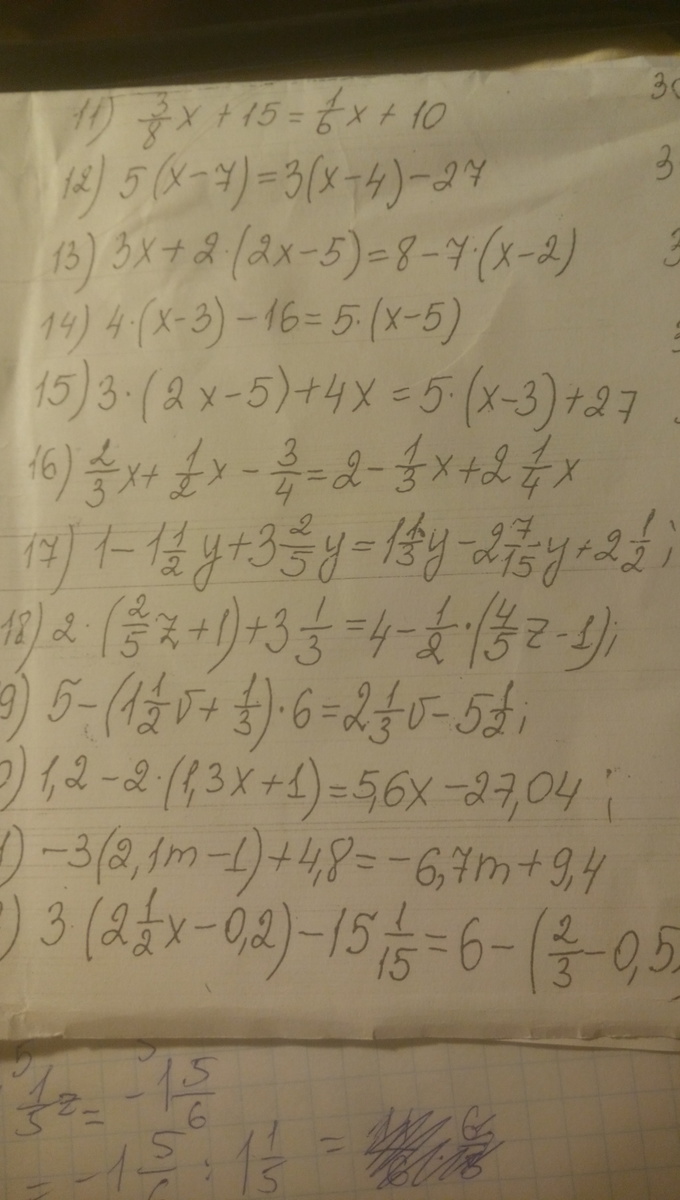 11) 3/8 x + 15 = 1/6 x + 10
12) 5(x-7) = 3(x-4) - 27
13) 3x + 2·(2x-5) = 8 - 7·(x-2)
14) 4·(x-3) - 16 = 5·(x-5)
15) 3·(2x-5) + 4x = 5·(x-3) + 27
16) 2/3 x + 1/2 x - 3/4 = 2 - 1/3 x + 2 1/4 x
17) 1 - 1 1/2 y + 3 2/5 y = 1 1/3 y - 2 7/15 y + 2 1/2;
18) 2·(2/5 z + 1) + 3 1/3 = 4 - 1/2·(4/5 z - 1);
9) 5 - (1 1/2 v + 1/3)·6 = 2 1/3 v - 5 1/2;
) 1,2 - 2·(1,3x + 1) = 5,6x - 27,04;
1) -3(2,1m - 1) + 4,8 = -6,7m + 9,4
) 3·(2 1/2 x - 0,2) - 15 1/15 = 6 - (2/3 - 0,5
1/3 z = -1 5/6
= -1 5/6 : 1 1/3 =